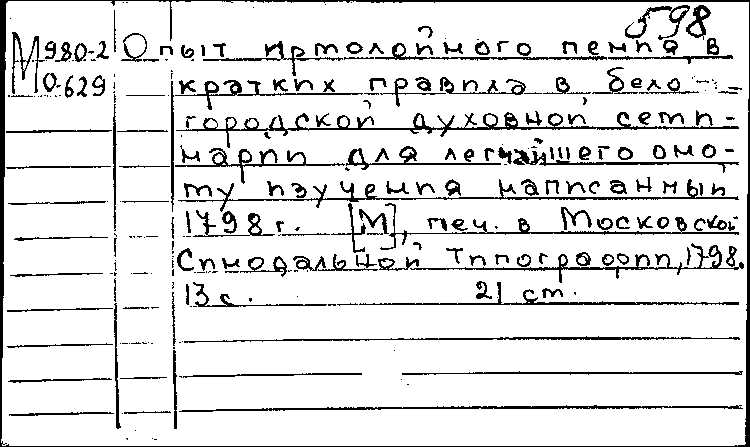 598
М980-2 Опыт ирмолойного пения, в
0.629 кратких правила в, бело-
городской духовной семи-
нарии для легчайшего оно-
му изучения написанный
1798 г. [М], печ. в Московской
Синодальной Типографии, 1798.
13 с. 21 ст.